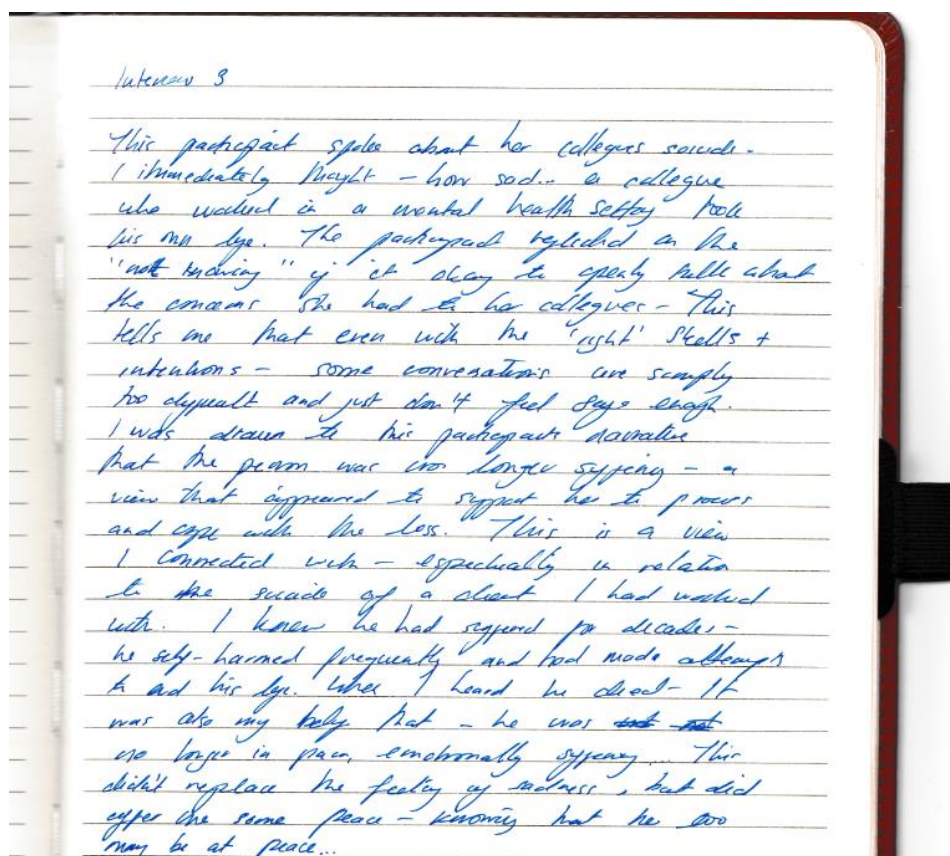 Interview 3
This participant spoke about her collegues suicide.
I immediately thought – how sad... a collegue
who worked in a mental health setting took
his own life. The participant reflected on the
"not knowing" if it okay to openly talk about
the concerns she had to her collegues – This
tells me that even with the 'right' skills +
intentions – some conversations are simply
too difficult and just don't feel safe enough.
I was drawn to this participants narrative
that the person was no longer suffering – a
view that appeared to support her to process
and cope with the loss. This is a view
I connected with – especially in relation
to the suicide of a client I had worked
with. I knew he had suffered for decades –
he self-harmed frequently and had made attempts
to end his life. When I heard he died – It
was also my belief that – he was
no longer in pain, emotionally suffering... This
didn't replace the feeling of sadness, but did
offer me some peace – knowing that he too
may be at peace...